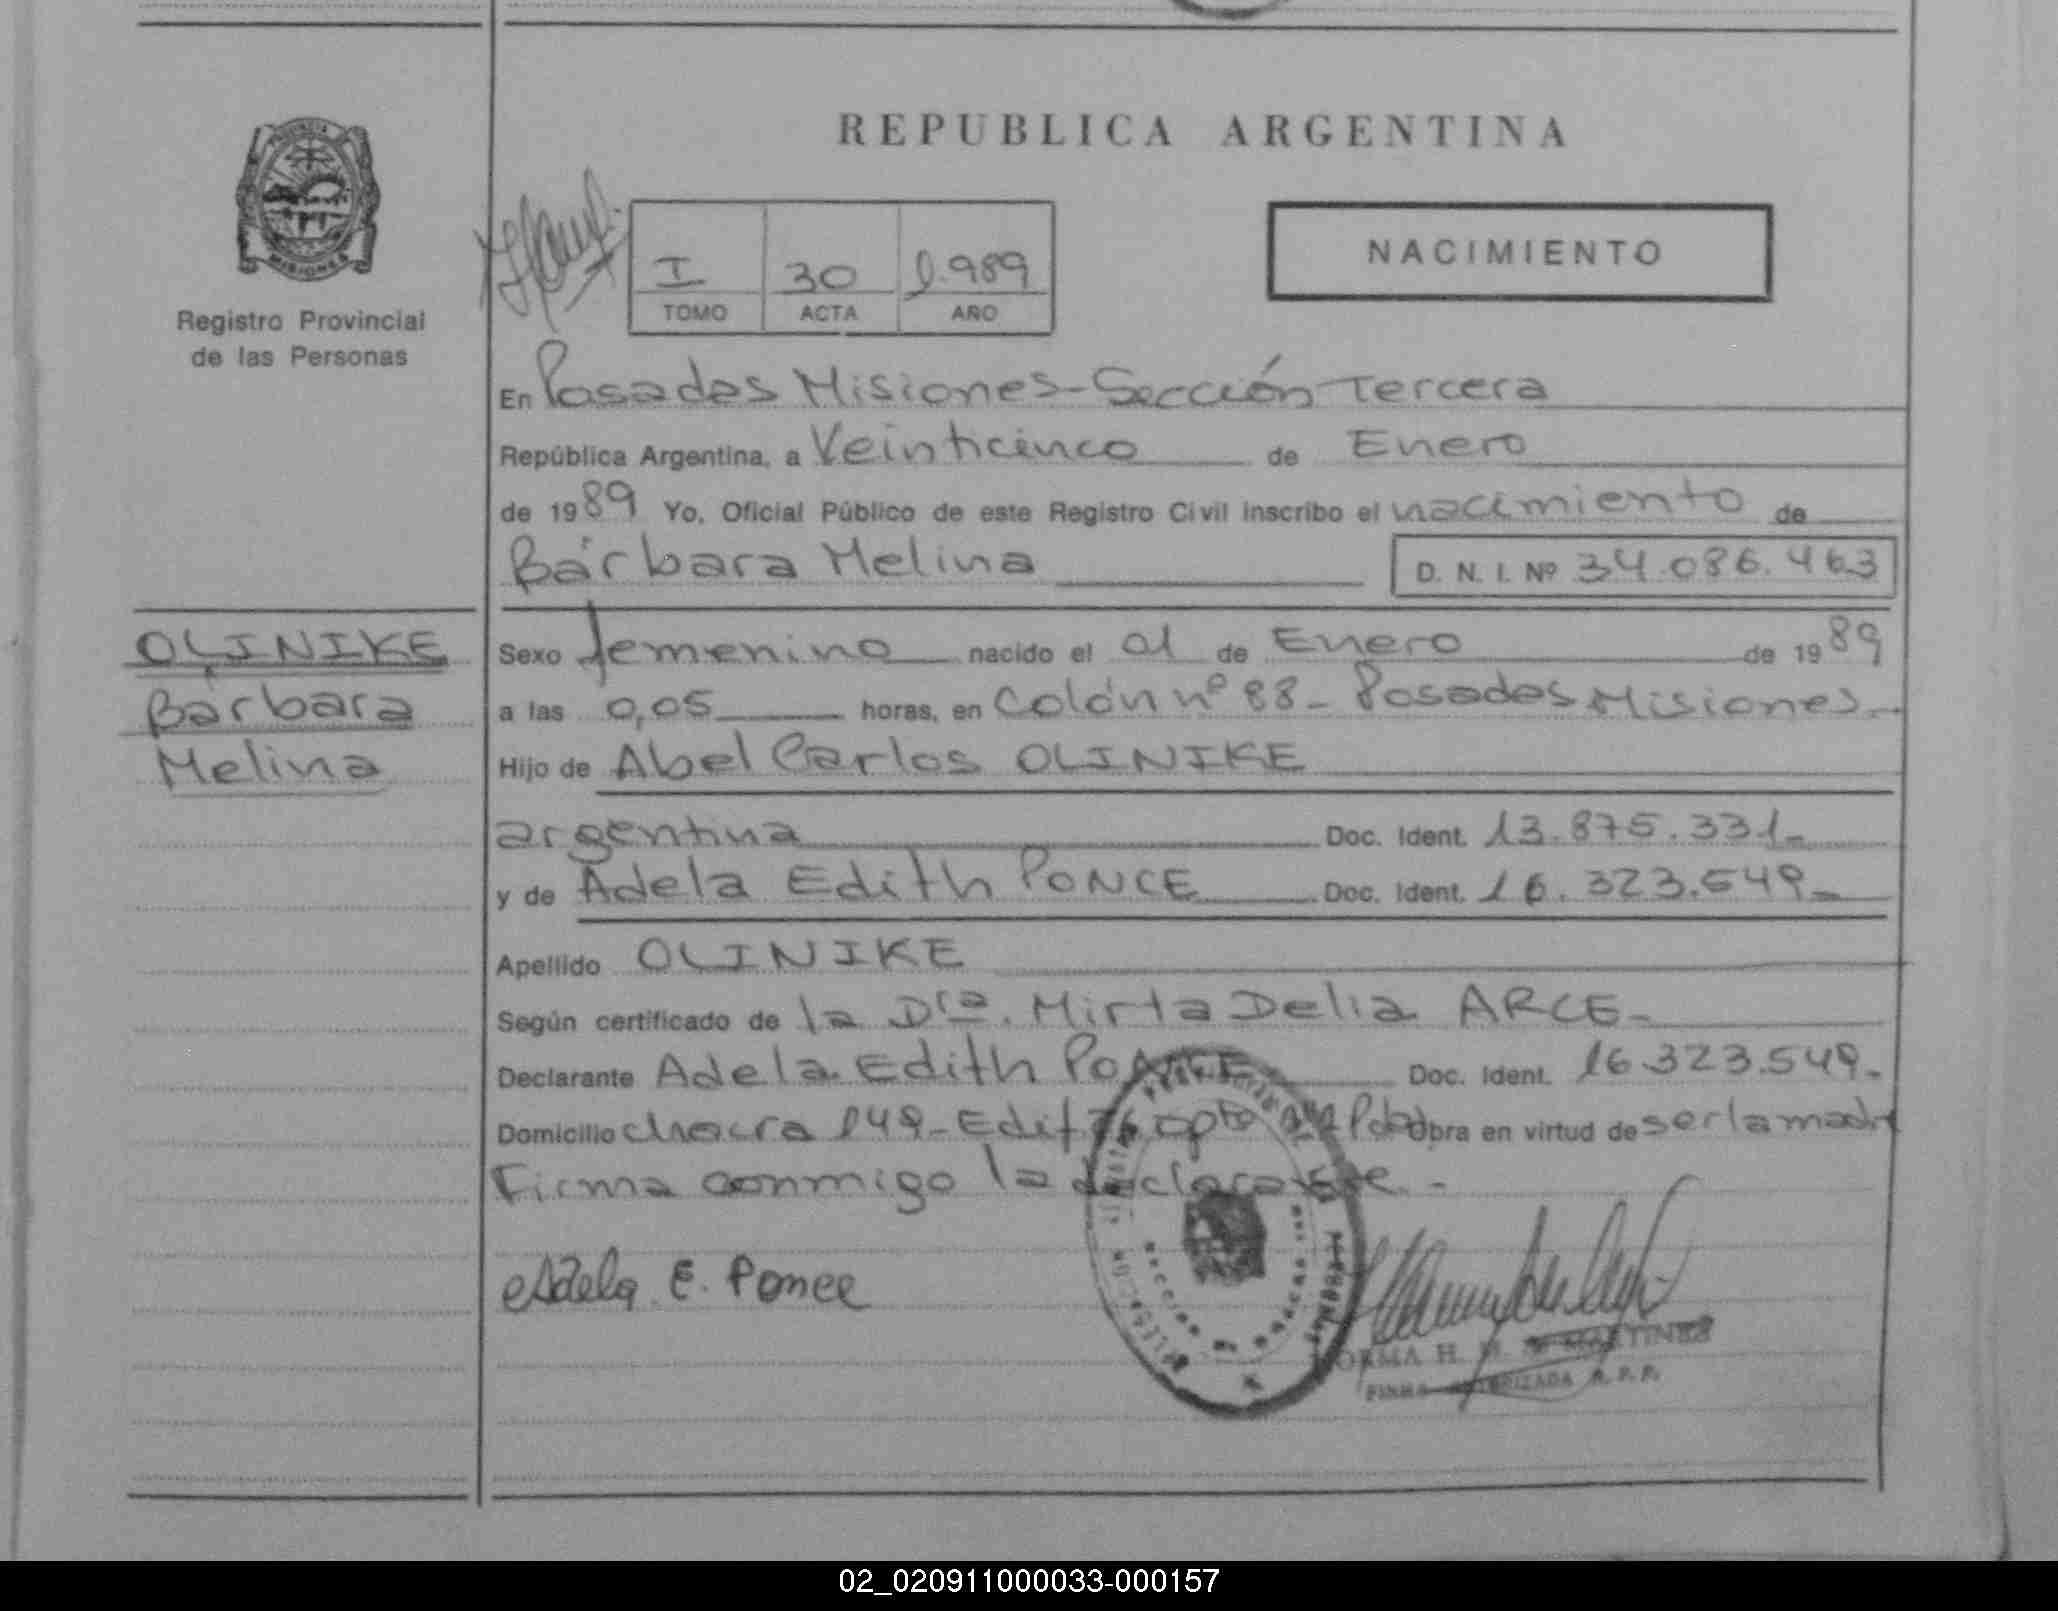 REPUBLICA ARGENTINA
PROVINCIA
MISIONES
Registro Provincial
de las Personas
I 30 1.989
TOMO ACTA AÑO
NACIMIENTO
En Posadas Misiones-Sección Tercera
República Argentina, a Veinticinco de Enero
de 1989 Yo, Oficial Público de este Registro Civil inscribo el nacimiento de
Bárbara Melina D. N. I. Nº 34.086.463
OLINIKE
Bárbara
Melina
Sexo femenino nacido el 01 de Enero de 1989
a las 0,05 horas, en Colón nº 88 - Posadas Misiones.-
Hijo de Abel Carlos OLINIKE
argentina Doc. Ident. 13.875.331-
y de Adela Edith PONCE Doc. Ident. 16.323.549-
Apellido OLINIKE
Según certificado de la Dra. Mirta Delia ARCE-
Declarante Adela Edith PONCE Doc. Ident. 16.323.549.-
Domicilio chacra 149-Edif opto Obra en virtud de ser la madre
Firma conmigo la declarante.-
Adela E. Ponce
NORMA H. MARTINEZ
FIRMA AUTORIZADA R. P. P.
02_020911000033-000157